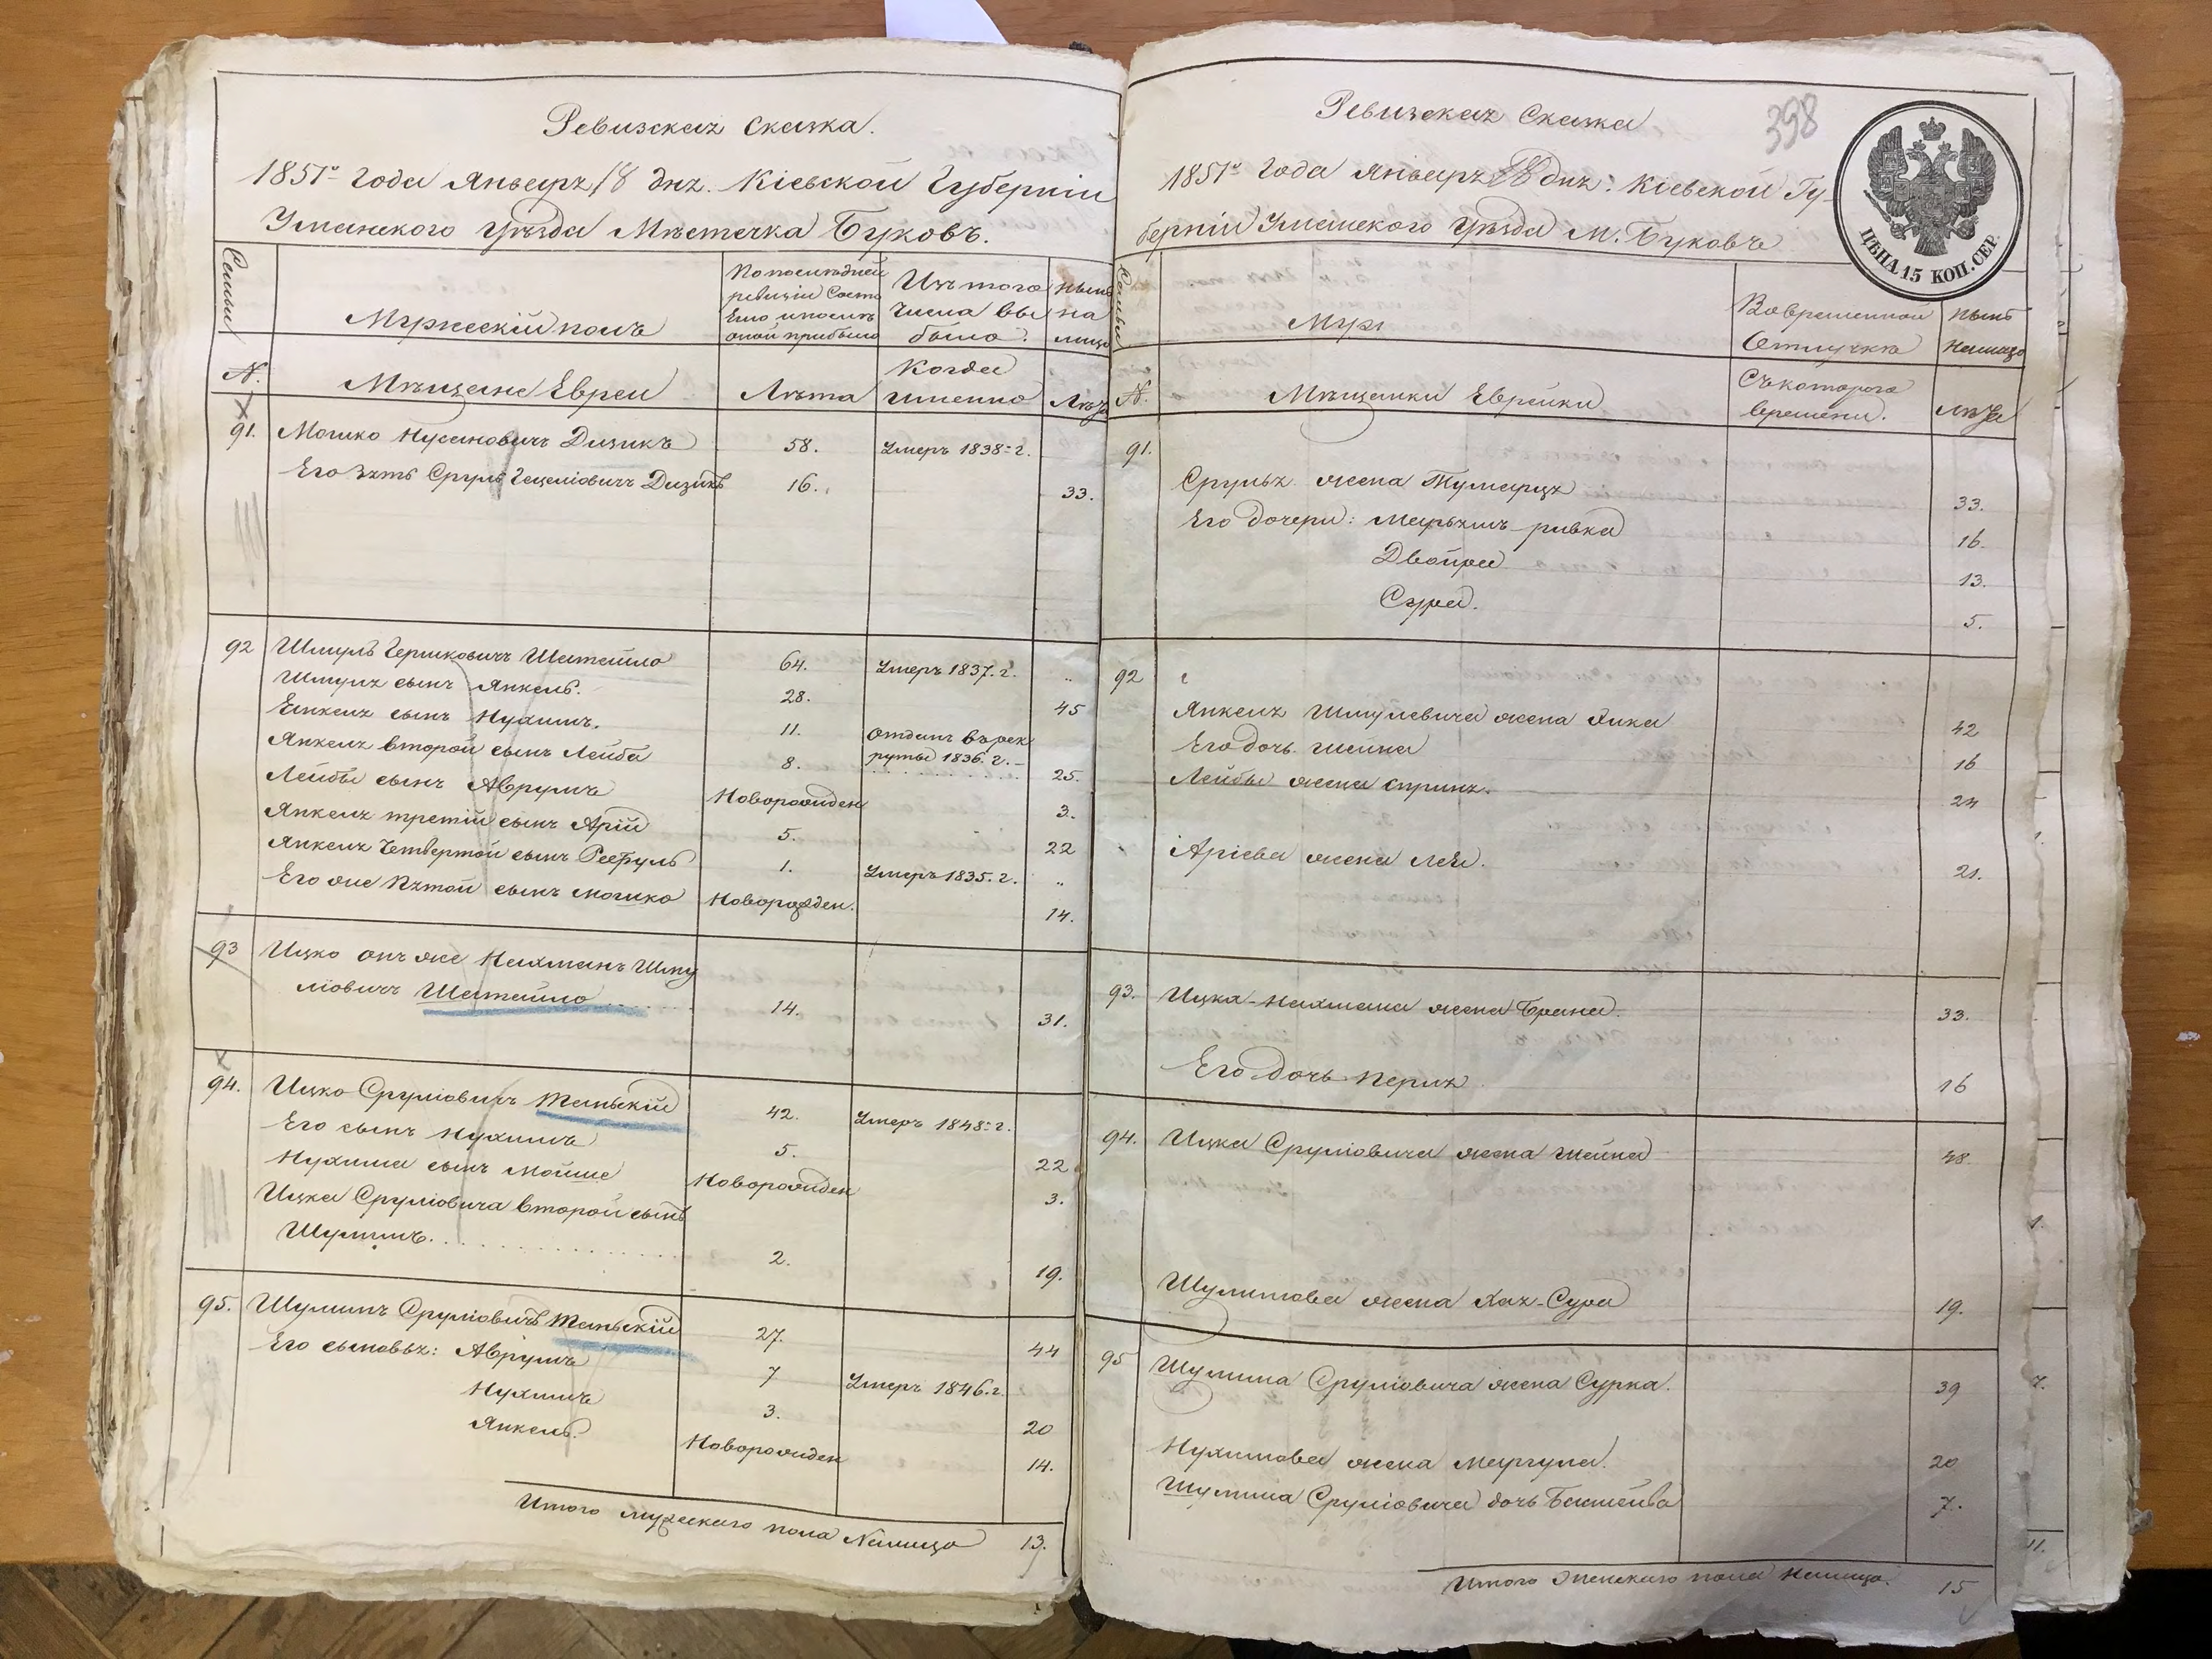 Ревизская Сказка.
1851го года Января 18 дня. Кіевской Губерніи
Уманского Уѣзда Мѣстечка Буковъ.
Семьи
Мужескій полъ
По последней
ревизіи Состо
яло и послѣ
оной прибыло
Изъ того
числа вы
было.
Нынѣ
на
лицо
N.
Мѣщане Евреи
Лѣта
Когда
именно
Лѣта
91.
Мошко Нусиновичъ Дизикъ
58.
Умеръ 1838 г.
Его Зять Сруль Гецеліовичъ Дизикъ
16.
33.
92
Шмуль Гершковичъ Шатайло
64.
Умеръ 1837. г.
Шмуля сынъ Янкель.
28.
45
Янкеля сынъ Нухимъ.
11.
Отданъ в рек
руты 1836. г.
Янкеля второй сынъ Лейба
8.
25.
Лейбы сынъ Аврумъ
Новорожден
3.
Янкеля третій сынъ Арій
5.
22
Янкеля Четвертой сынъ Рефуль
1.
Умеръ 1835. г.
Его же Пятой сынъ Мошко
Новорожден.
14.
93
Ицко онъ же Нахманъ Шму
ліовичъ Шатайло
14.
31.
94.
Ицко Сруліовичъ Тальскій
42.
Умеръ 1848 г.
Его сынъ Нухимъ
5.
22
Нухима сынъ Мойше
Новорожден
3.
Ицка Сруліовича второй сынъ
Шулимъ.
2.
19.
95.
Шулимъ Сруліовичъ Тальскій
27.
44
Его сыновья: Аврумъ
7
Умеръ 1846. г.
Нухимъ
3.
20
Янкель.
Новорожден
14.
Итого мужескаго пола Налицо
13.
398
Ревизская Сказка
1851го года Января 18 дня. Кіевской Гу-
берніи Уманского Уѣзда М. Буковъ
ЦѢНА 15 КОП. СЕР.
Семьи
Во временной
Отлучкѣ
Нынѣ
налицо
N.
Мѣщанки Еврейки
Съ которого
времени.
Лѣта
91.
Сруля жена Тумарця
33.
Его дочери: Марьямъ-ривка
16.
Двойра
13.
Сура.
5.
92
Янкеля Шмулевича жена Хика
42
Его дочь Шейна
16
Лейбы жена Сприня.
24
Аріева жена Лея.
21.
93.
Ицка-Нахмана жена Брана.
33.
Его дочь Перля
16
94.
Ицка Сруліовича жена Шейна
48.
Шулимова жена Хая-Сура
19.
95
Шулима Сруліовича жена Сурка.
39
Нухимова жена Маргула.
20
Шулима Сруліовича дочь Башейва
7.
Итого Женскаго пола налицо.
15